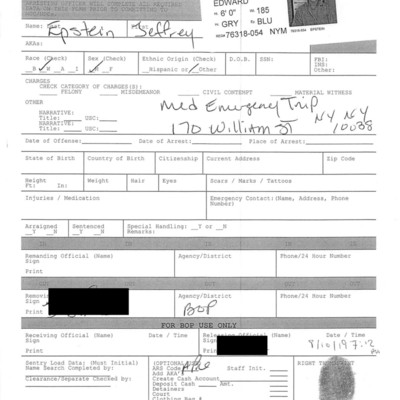 EDWARD
6' 0" 185
GRY BLU
76318-054 NYM
Name Epstein Jeffrey
AKAs:
Race (Check) Sex (Check) Ethnic Origin (Check) D.O.B. SSN: FBI:
B W A I M F Hispanic or Other IND:
Other:
CHARGES
CHECK CATEGORY OF CHARGE(S):
FELONY MISDEMEANOR CIVIL CONTEMPT MATERIAL WITNESS
OTHER Med Emergency Trip
NARRATIVE:
Title: USC:
NARRATIVE: 170 William St NY NY
Title: USC: 10038
Date of Offense: Date of Arrest: Place of Arrest:
State of Birth Country of Birth Citizenship Current Address Zip Code
Height Weight Hair Eyes Scars / Marks / Tattoos
Ft: In:
Injuries / Medication Emergency Contact:(Name, Address, Phone
Number)
Arraigned Sentenced Special Handling: Y or N
Y N Y N Remarks:
IN IN IN
Remanding Official (Name) Agency/District Phone/24 Hour Number
Sign
Print
Receiving Official (Name) Agency/District Phone/24 Hour Number
Sign
Print
OUT
Removing Agency/District Phone/24 Hour Number
Sign
Print BOP
FOR BOP USE ONLY
Receiving Official Date / Time Releasing Official Date / Time
Sign Sign
Print Print 8/10/19
Sentry Load Data: (Must Initial) (OPTIONAL) RIGHT THUMB
Name Search Completed by: ARS Code Staff Init.
Add AKA
Clearance/Separate Checked by: Create Cash Account
Deposit Cash Amt.
Detainers
Court
Clothing Bag #